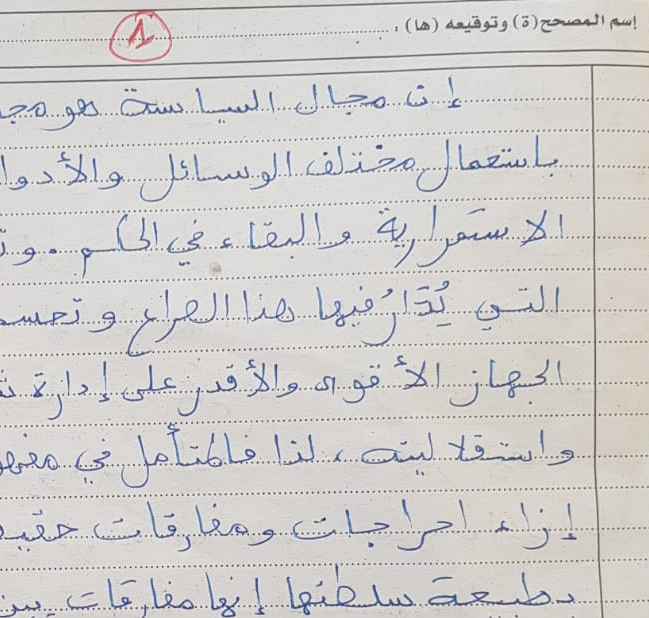 إسم المصحح(ة) وتوقيعه (ها) :
1
إن مجال السياسة هو
باستعمال مختلف الوسائل والأدوا
الاستمرارية والبقاء في الحكم . و
التي يُدَارُ فيها هذا الصراع و تحسم
الجهاز الأقوى والأقدر على إدارة
واستقلاليته ، لذا فالمتأمل في
إزاء احراجات ومفارقات
بطبيعة سلطتها إنها مفارقات بين